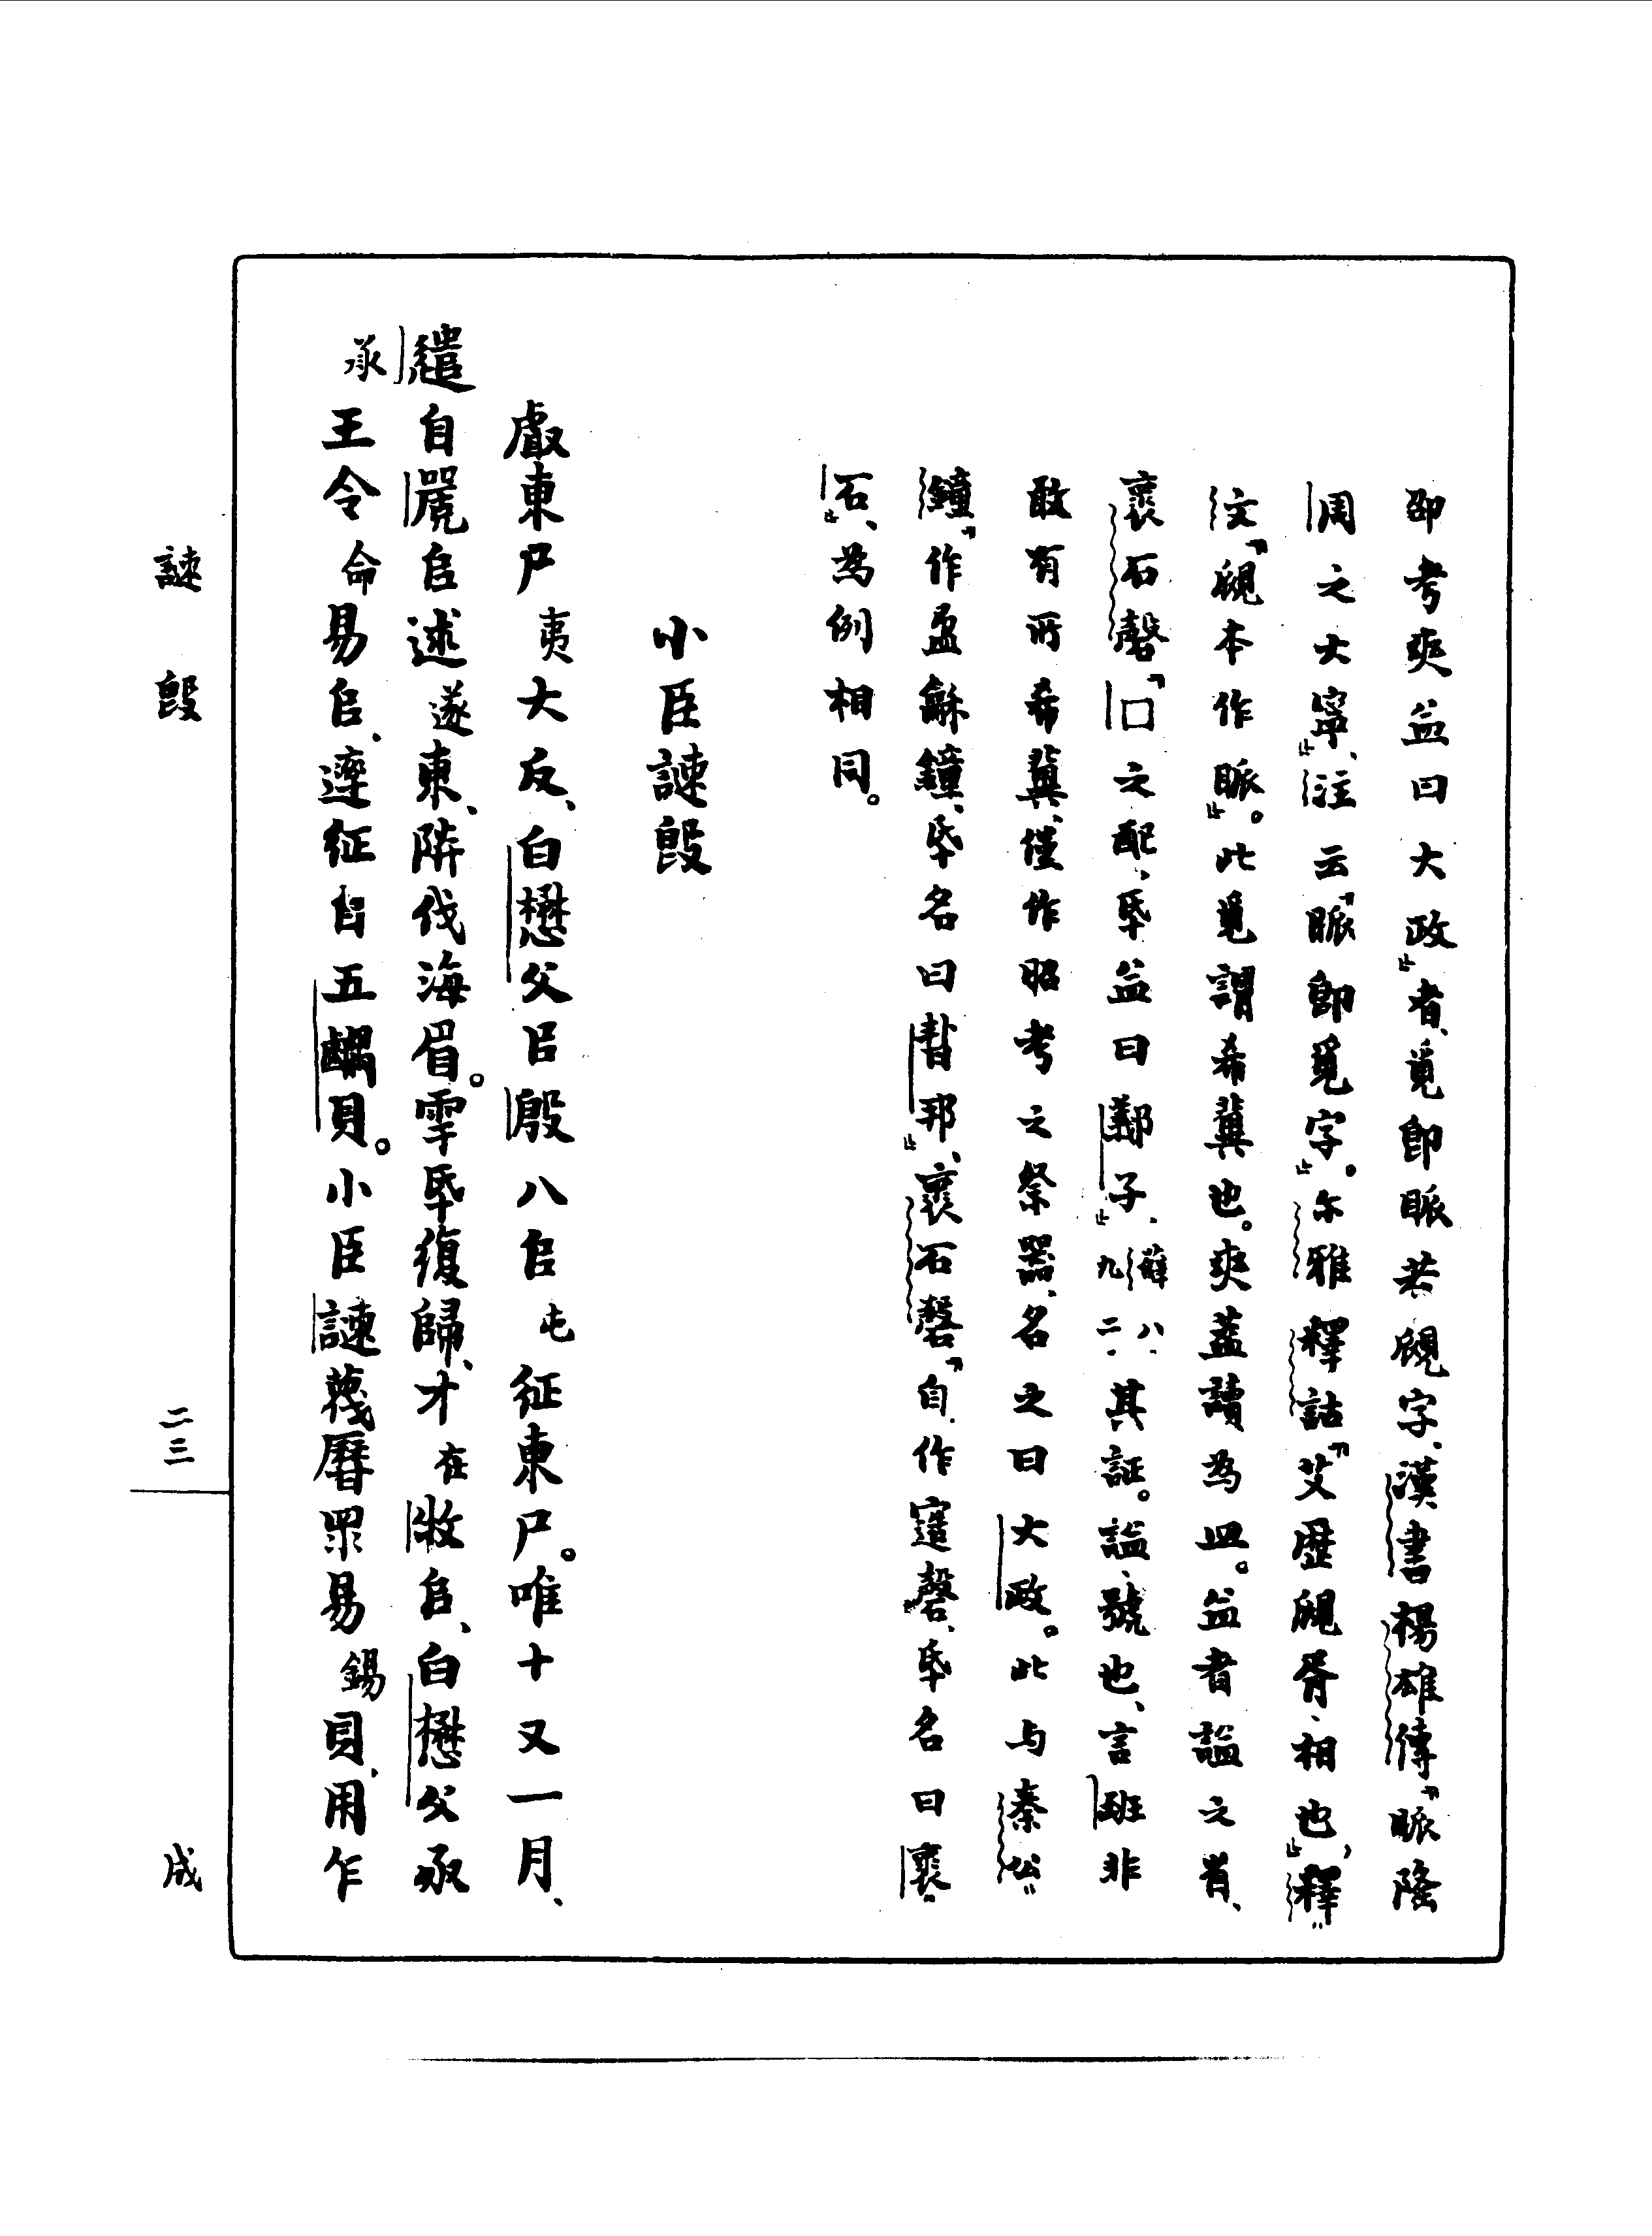 卲考爽益曰大政」者、覓即眽若覛字、漢書楊雄傳「眽隆
周之大寧」、注云「眽即覓字」。尔雅釋詁「艾歷覛胥、相也」，釋
文「覛本作眽」。此覓謂希冀也。爽蓋讀為皿。益者謚之省、
褱石磬「囗之配、氒益曰鄴子」、薛八·九二、其証。謚、號也、言班非
敢有所希冀、僅作昭考之祭器、名之曰大政。此与秦公
鐘「作盄龢鐘、氒名曰𣉙邦」、褱石磬「自作䢦磬、氒名曰褱
石」、為例相同。
小臣謎𣪘
𠭯東尸夷大反、白懋父㠯殷八𠂤屯征東尸。唯十又一月、
遣自𠂤述遂東、陟伐海眉。雩氒復歸、才在牧𠂤、白懋父承
承王令命易𠂤、䢦征自五齵貝。小臣謎蔑曆眔易錫貝、用乍
謎𣪘
二三
成